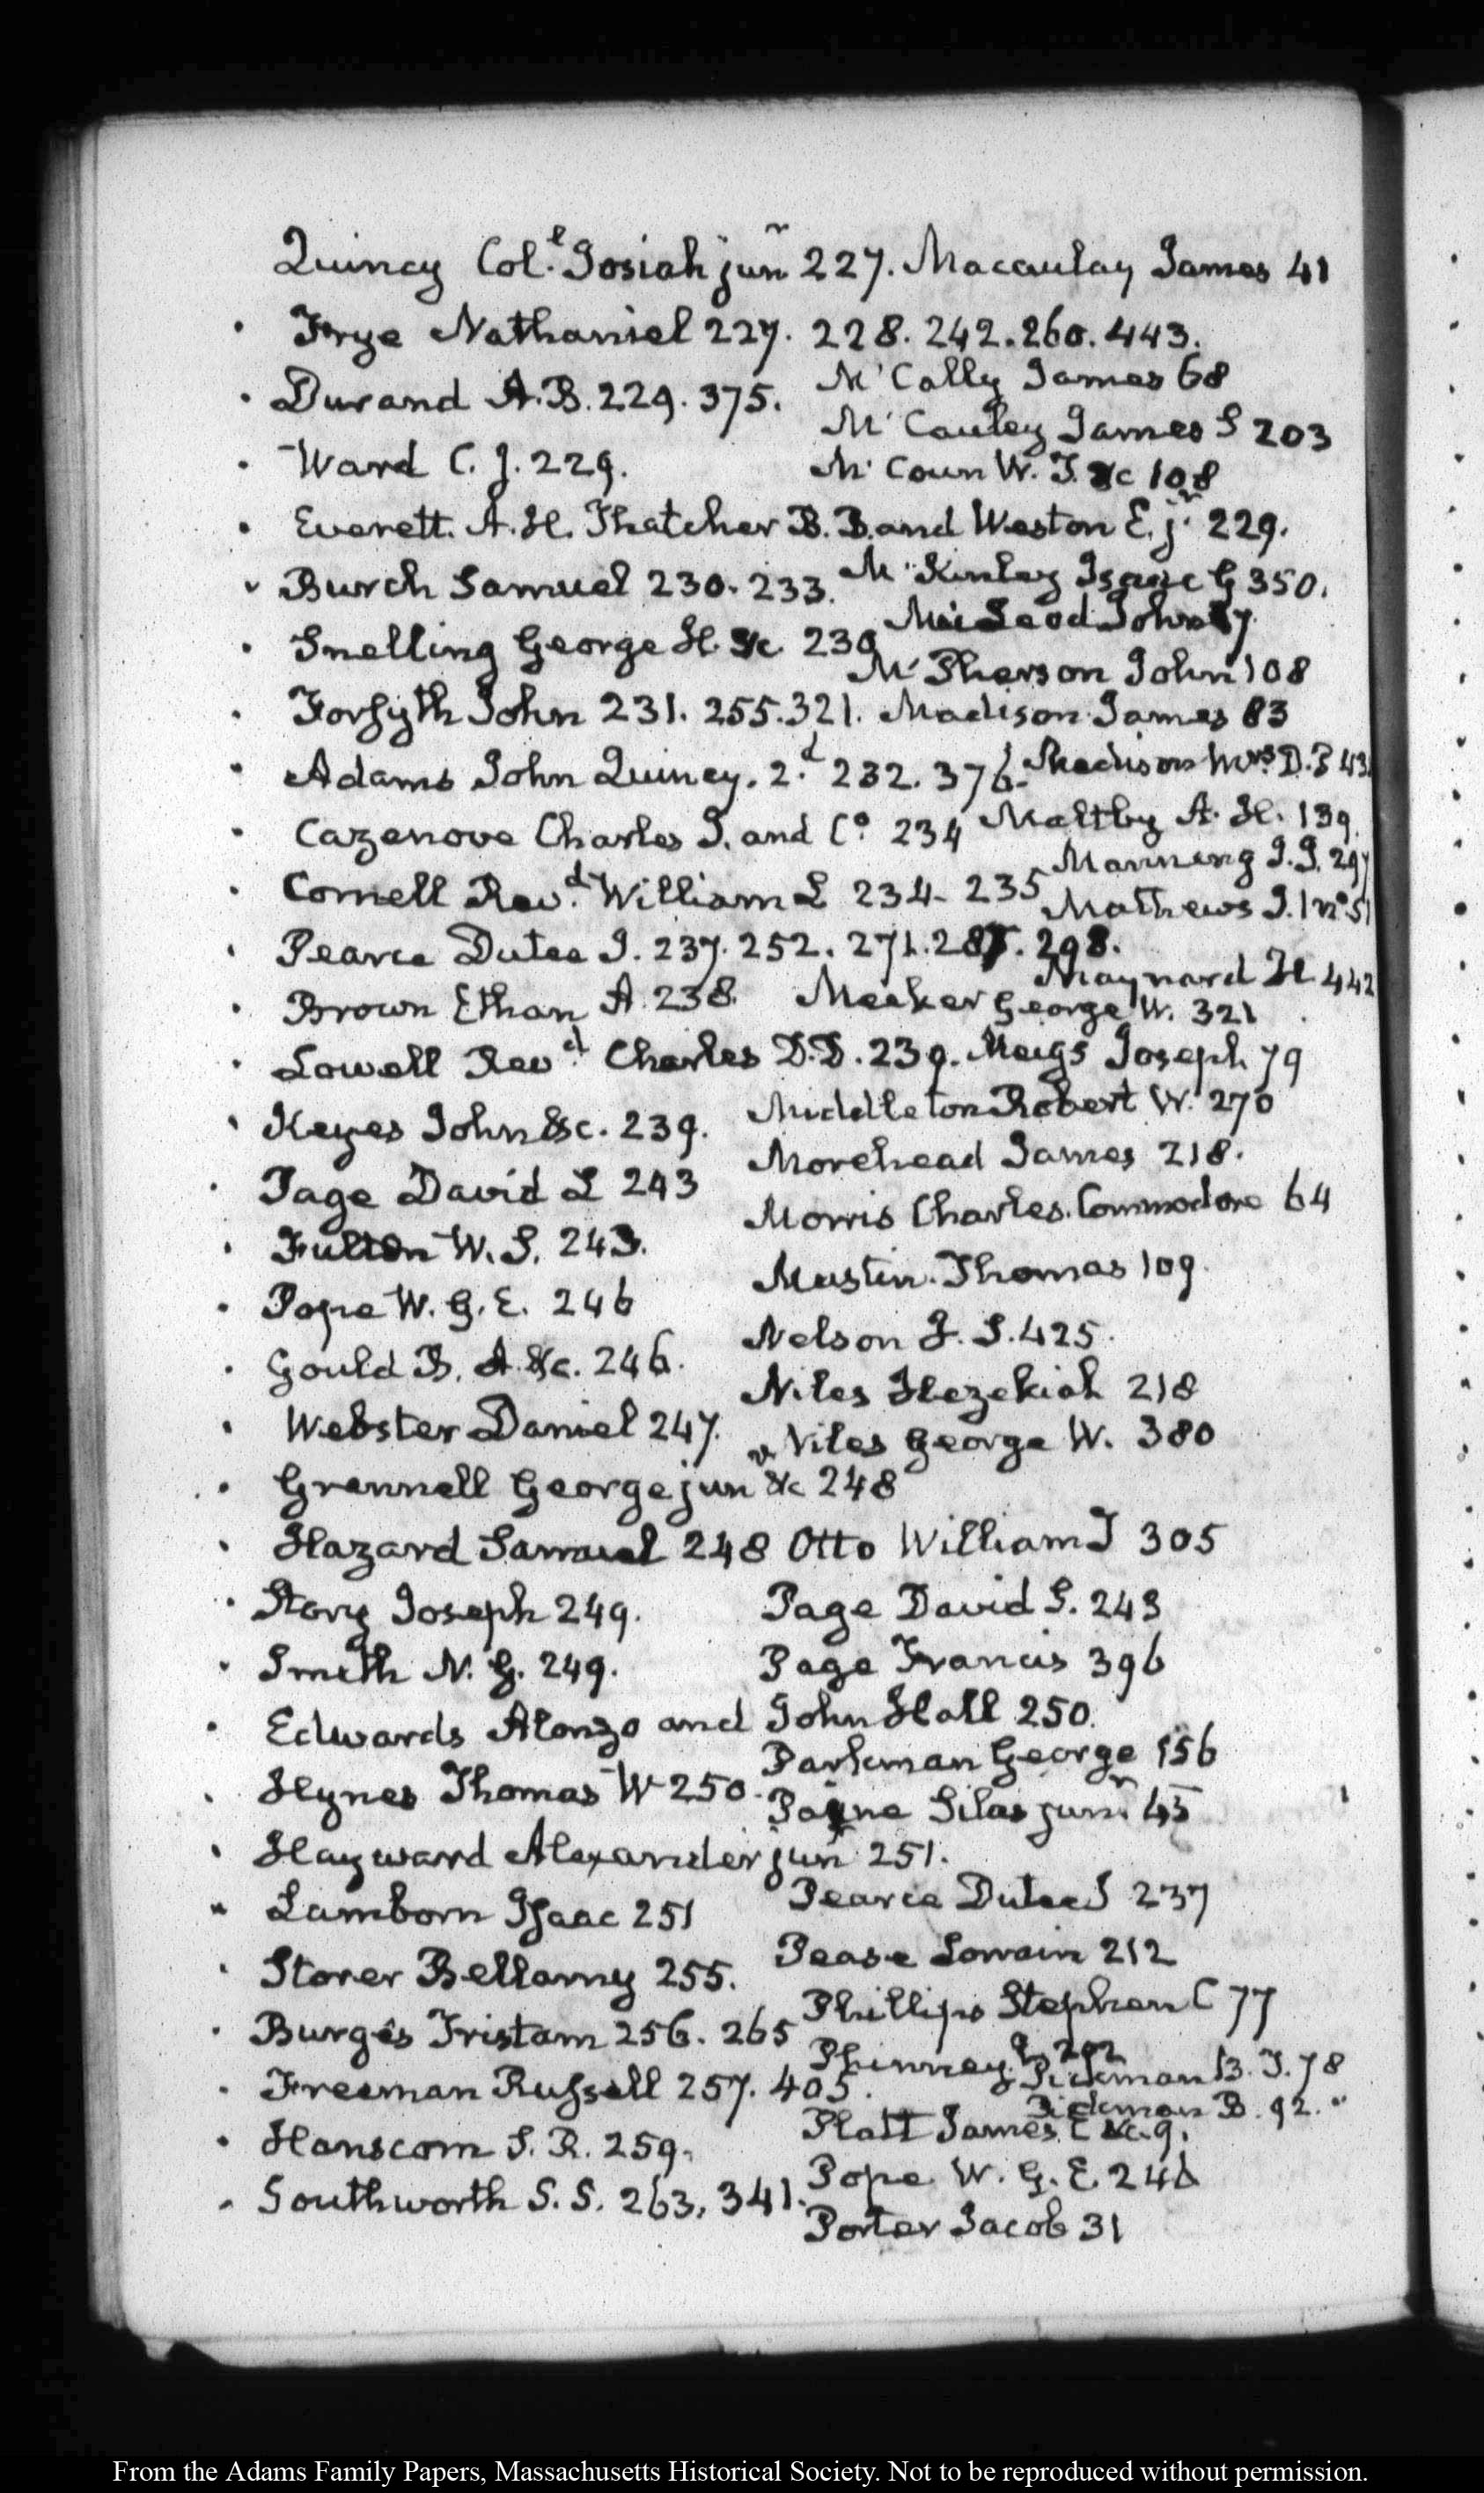 Quincy Col.l Josiah junr 227. Macaulay James 41
Frye Nathaniel 227. 228. 242. 260. 443.
M'Cally James 68
Durand A. B. 229. 375.
M'Cauley James S 203
Ward C. J. 229.
M'Coun W. T. &c 108
Everett. A. H. Thatcher B. B. and Weston E. jr. 229.
Burch Samuel 230. 233. M'Kinley Isaac G 350.
McLeod John 87
Snelling George H. &c. 230
M'Pherson John 108
Forsyth John 231. 255. 321. Madison James 83
Adams John Quincy. 2.d 232. 376. Madison Mrs. D. P 43
Cazenove Charles J. and Co. 234 Maltby A. H. 139.
Manning J. J. 297
Cornell Revd. William L 234. 235
Mathews J. 1 no. 51
Pearce Dutee J. 237. 252. 271. 287. 298.
Maynard H. 442
Brown Ethan A. 238. Meeker George W. 321
Lowell Revd. Charles D.D. 239. Meigs Joseph 79
Keyes John &c. 239. Middleton Robert W. 270
Morehead James 218.
Page David L 243
Morris Charles. Commodore 64
Fulton W. S. 243.
Mustin. Thomas 109.
Pope W. G. E. 246
Nelson J. S. 425.
Gould B. A. &c. 246.
Niles Hezekiah 218
Webster Daniel 247. Niles George W. 380
Grennell George jun &c 248
Hazard Samuel 248 Otto William T 305
Story Joseph 249. Page David S. 243
Smith N. G. 249. Page Francis 396
Edwards Alonzo and John Hall 250.
Parkman George 156
Hynes Thomas W 250. Payne Silas junr. 45
Hayward Alexander junr 251.
Pearce Dutee J 237
Lamborn Isaac 251
Pease Lorrain 212
Storer Bellamy 255.
Phillips Stephen C 77
Burges Tristam 256. 265
Phinney 202
Pickman B. T. 78
Freeman Russell 257. 405.
Pickman B. 92. "
Platt James C &c. 9.
Hanscom S. R. 259.
Pope W. G. E. 246
Southworth S. S. 263. 341.
Porter Jacob 31
From the Adams Family Papers, Massachusetts Historical Society. Not to be reproduced without permission.